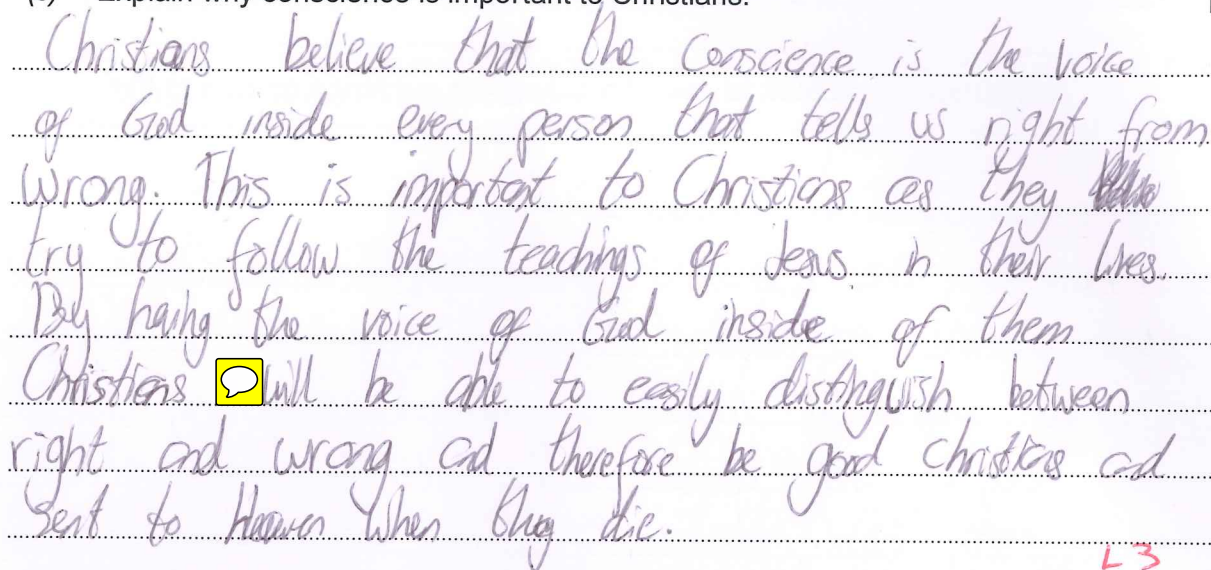 (c) Explain why conscience is important to Christians.
Christians believe that the Conscience is the voice
of God inside every person that tells us right from
wrong. This is important to Christians as they
try to follow the teachings of Jesus in their lives.
By having the voice of God inside of them
Christians will be able to easily distinguish between
right and wrong and therefore be good christians and
sent to Heaven when they die.
L3